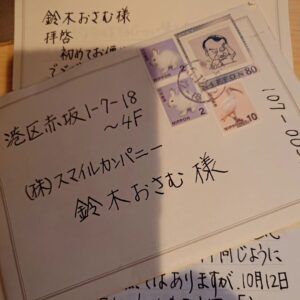 鈴木おさむ様
拝啓
初めてお
港区赤坂1-7-18
~4F
(株)スマイルカンパニー
鈴木おさむ 様
NIPPON
2
NIPPON
2
NIPPON 80
NIPPON
10
107-00
同じように
はありますが、10月12日